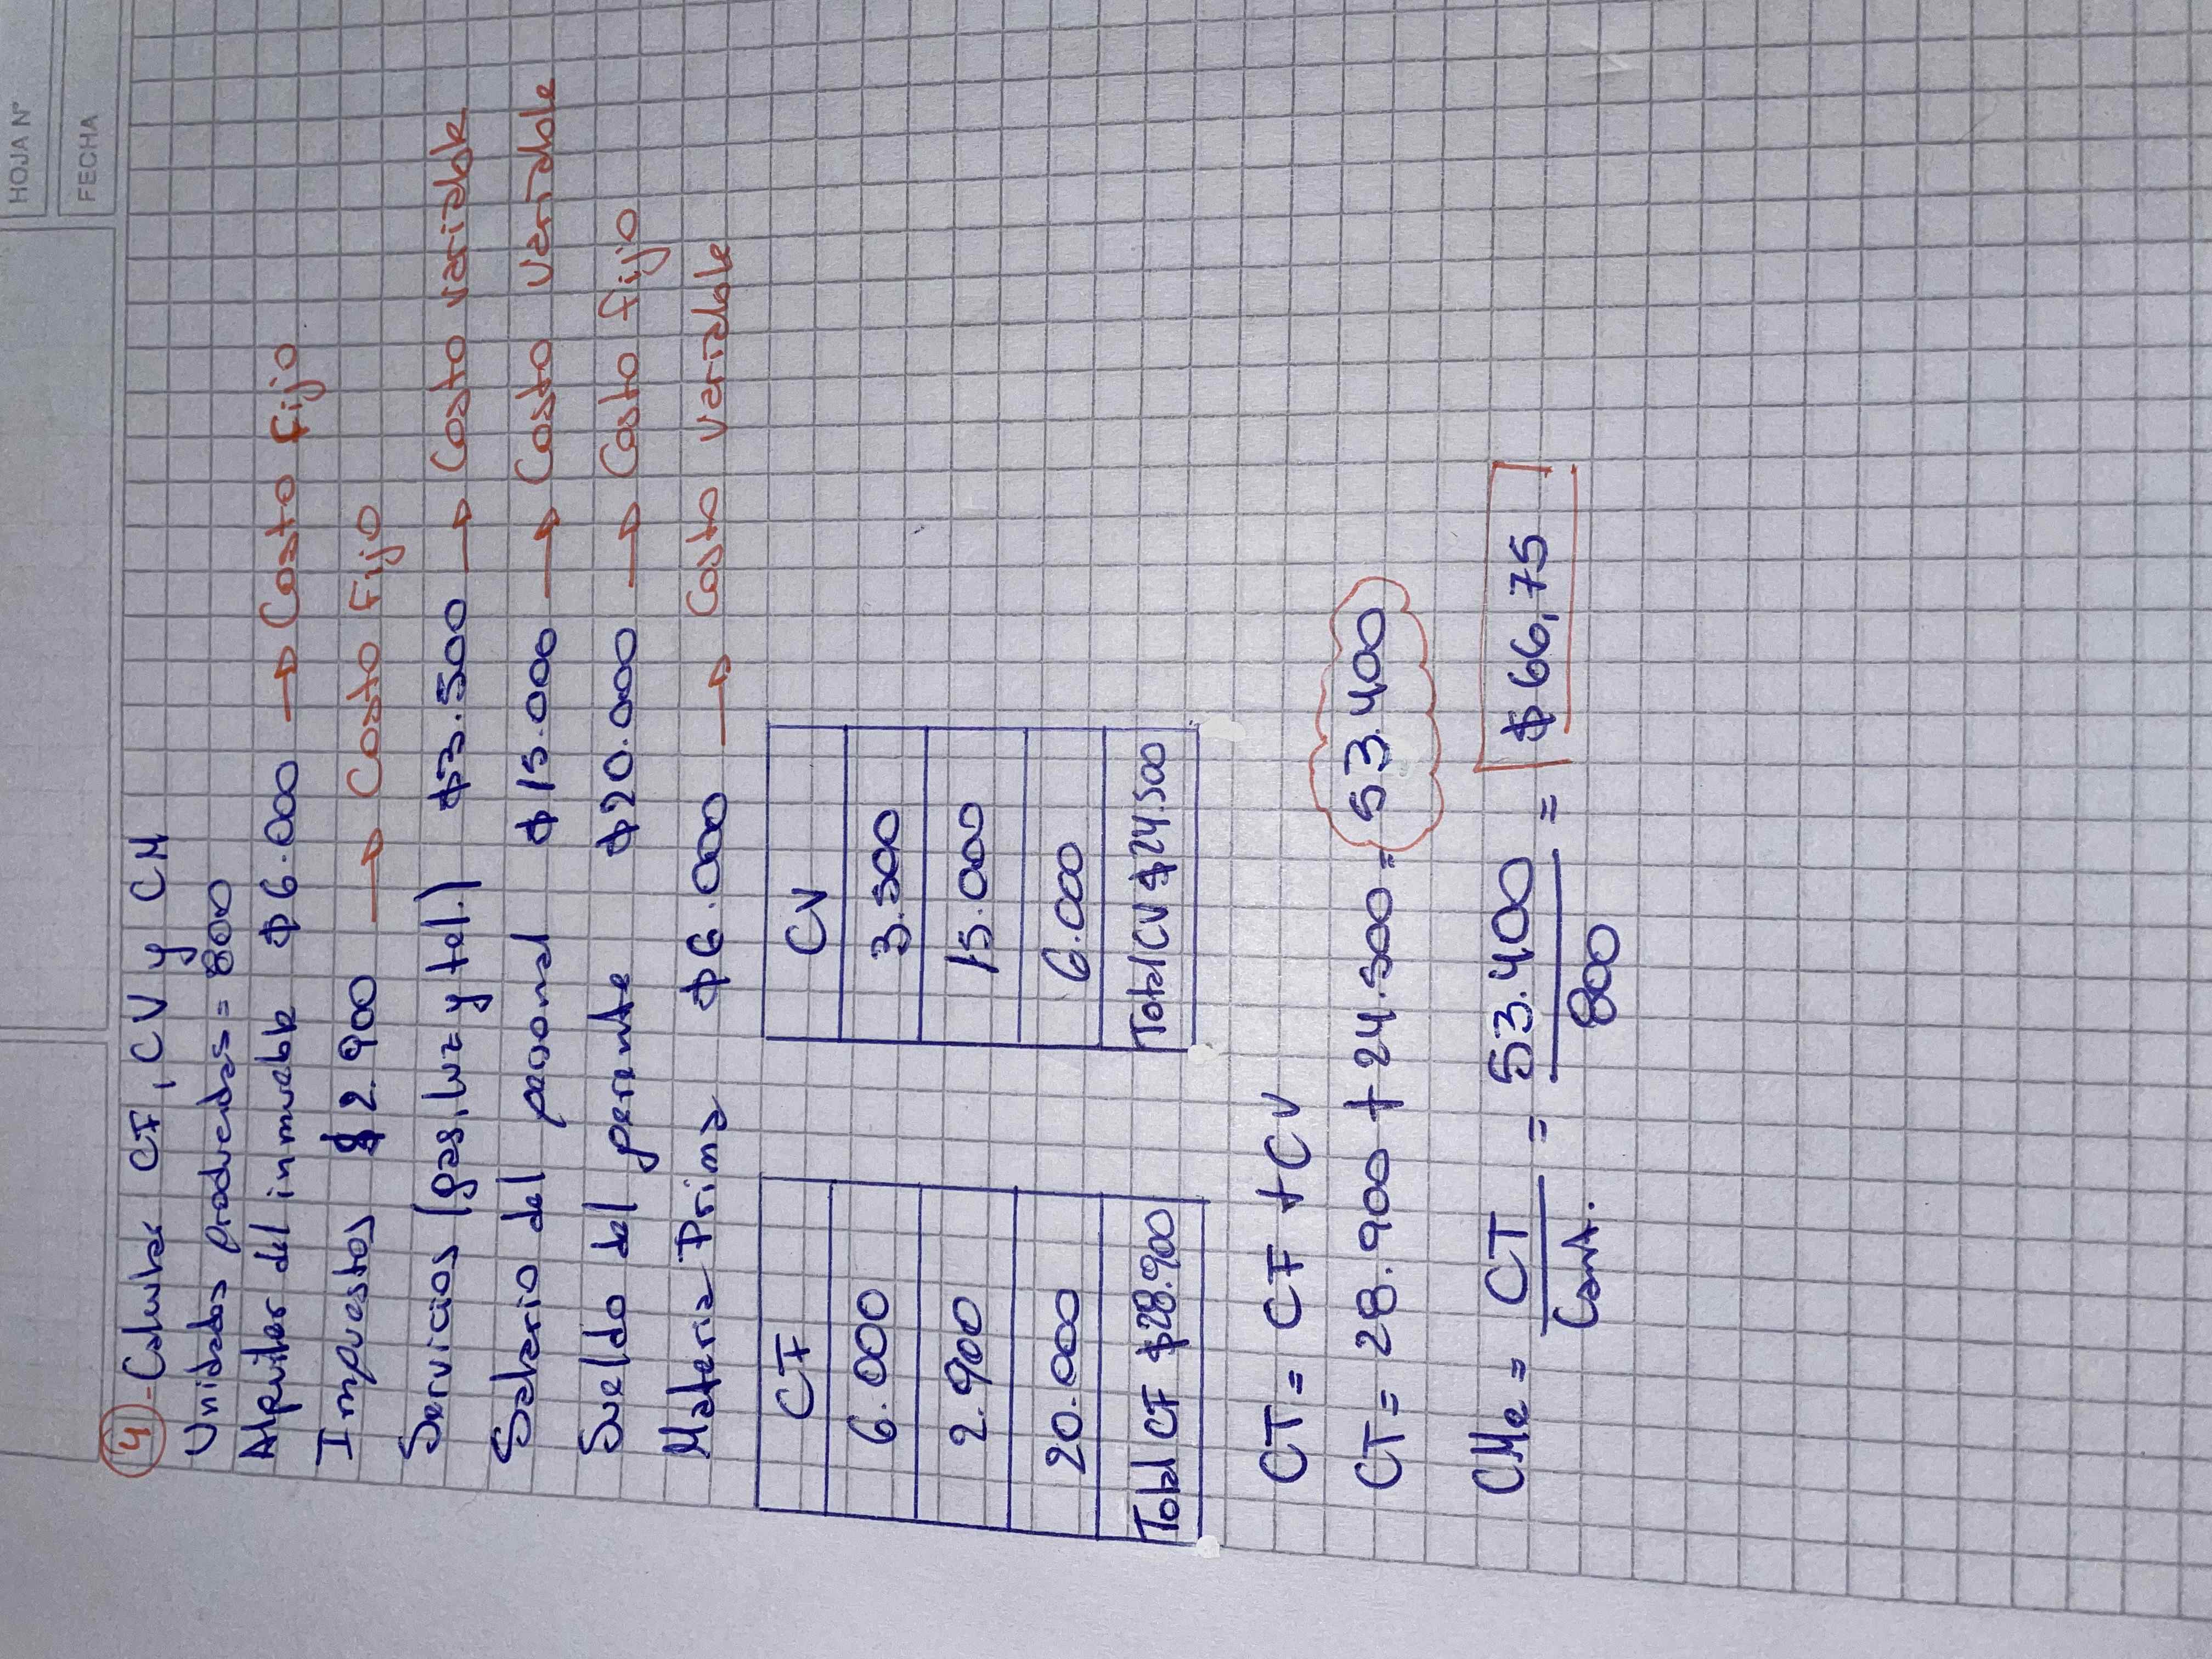 HOJA Nº
FECHA
4 - Calcular CF, CV y CM
Unidades producidas = 800
Alquiler del inmueble $6.000 → Costo Fijo
Impuestos $2.900 → Costo Fijo
Servicios (gas, luz y tel.) $3.500 → Costo variable
Salario del personal $15.000 → Costo variable
Sueldo del gerente $20.000 → Costo fijo
Materia Prima $6.000 → Costo variable
CF CV
6.000 3.500
2.900 15.000
20.000 6.000
Total CF $28.900 Total CV $24.500
CT = CF + CV
CT = 28.900 + 24.500 = 53.400
CMe = CT / Cant. = 53.400 / 800 = $66,75